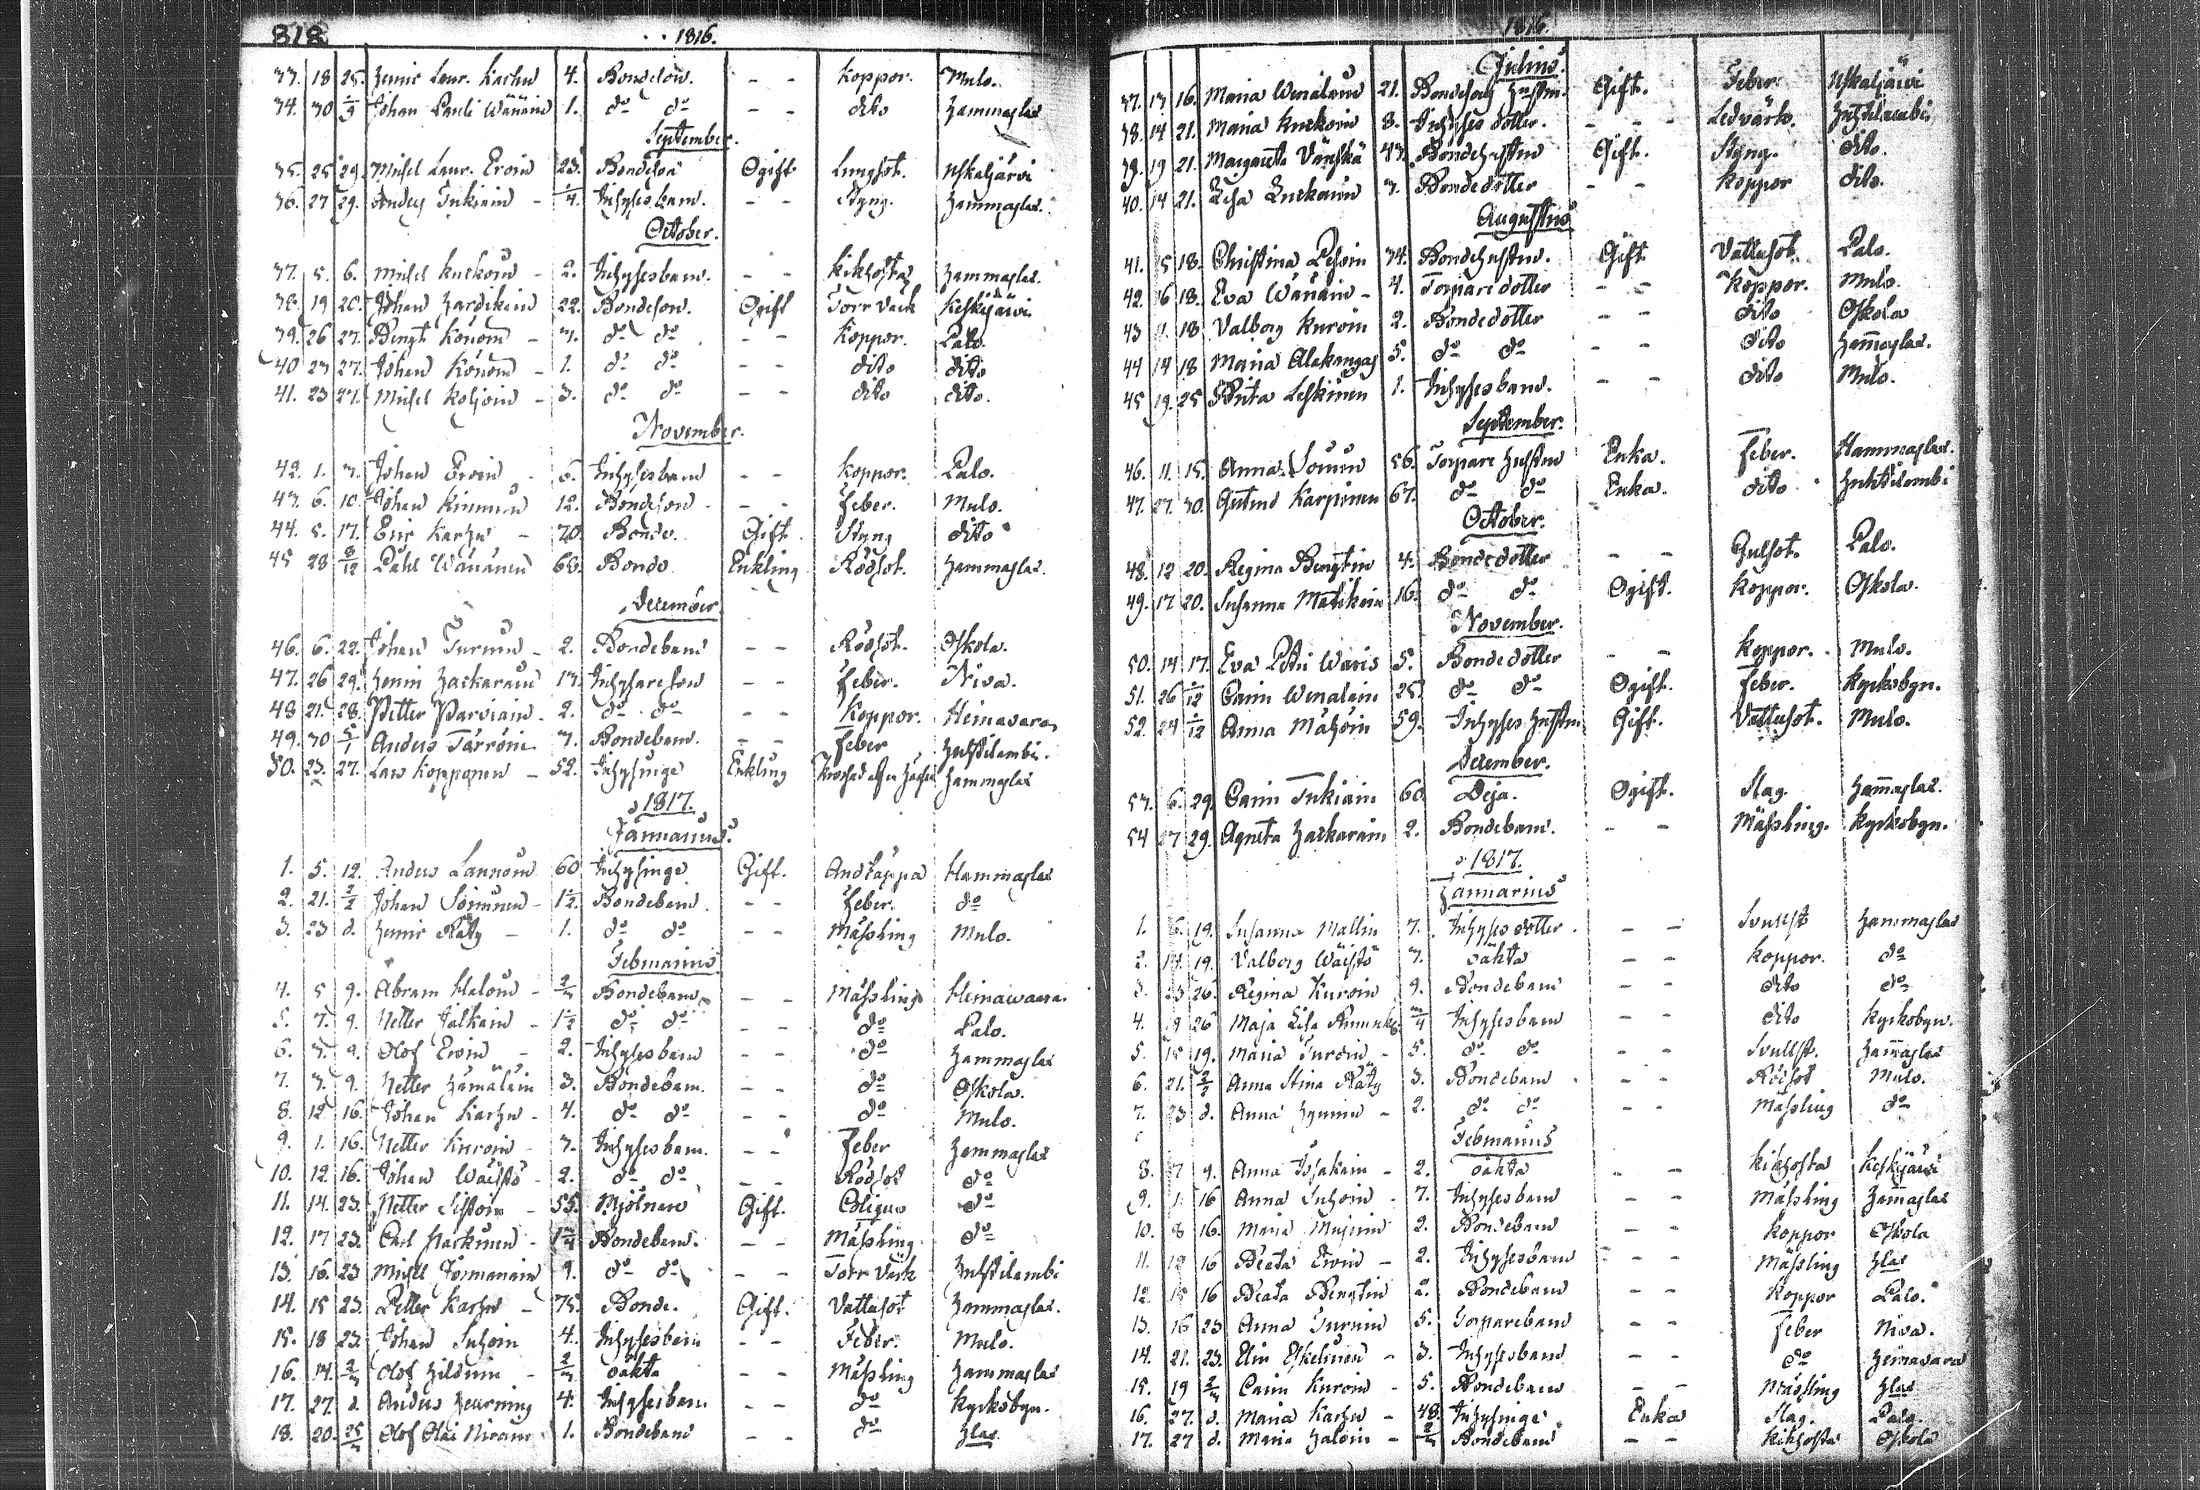 818
1816.
33. 18 25. Henric Laur. Karhu 4. Bondeson. - - Koppor. Mulo.
34. 30 1/9 Johan Pauli Wänäin 1. do do - - dito Hammaslax
September.
35. 25 29. Michel Laur. Eroin 23. Bondeson Ogift Lungsot. Uskaljärvi
36. 27 29. Anders Tukiain - Inhyses barn. - - Styng. Hammaslax.
October.
37. 5. 6. Michel Kuckoin - 2. Inhysesbarn. - - Kikhosta Hammaslax.
38. 19 20. Johan Hardikain 22. Bondeson. Ogift Torrvärk Keskijärvi
39. 26 27. Bengt Könöin - 3. do do - - Koppor. Palo.
40 23 27. Johan Könöin - 1. do do - - dito dito
41. 23 27. Michel Koljoin - 3. do do - - dito dito.
November.
42. 1. 3. Johan Eroin - 6. Inhysesbarn - - Koppor. Palo.
43. 6. 10. Johan Kinnun 12. Bondeson - - Feber. Mulo.
44. 5. 17. Eric Karhu - 70. Bonde. Gift Styng dito
45 28 8/12 Påhl Wänänen 63. Bonde Enkling Rödsot. Hammaslax.
December
46. 6. 22. Johan Turunen - 2. Bondebarn - - Rödsot. Oskola.
47. 26 29. Henric Hackarain 13. Inhyseson - - Feber. Niva.
48 21. 28. Petter Parviain. 2. do do - - Koppor. Heinavara
49. 30 5/1 Anders Tarroin 3. Bondebarn. - - Feber Huhtilambi.
50. 23. 27. Lars Kopponen - 52. Inhysinge Enkling Hammaslax
1817.
Januarius.
1. 5. 12. Anders Lannoin 60 Inhysinge Gift. Andtäppa Hammaslax
2. 21. 2/2 Johan Sormunen - 1 1/2. Bondebarn. - - Feber. do
3. 23 d. Henric Räty - 1. do do - - Mässling Mulo.
Februarius
4. 5 9. Abram Haloin - Bondebarn - - Mässling Heinawaara.
5. 7. 9. Petter Jalkain - 1 1/2 do do - - do Palo.
6. 3. 9. Olof Eroin - 2. Inhysesbarn - - do Hammaslax
7. 3. 9. Petter Hämäläin 3. Bondebarn. - - do Oskola.
8. 12 16. Johan Karhu - 4. do do - - do Mulo.
9. 1. 16. Petter Kuroin - 3. Inhysesbarn. - - Feber Hammaslax
10. 12 16. Johan Wäistö - 2. do do - - Rödsot do
11. 14. 23. Petter Sissoin - 55. Mjölnare Gift. Colique do
12. 17 23. Carl Hackinen - Bondebarn. - - Mässling do
13. 16. 23 Michel Tormanain 9. do do - - Torrvärk Huhtilambi
14. 15 23. Petter Karhu - 75. Bonde. Gift. Vattusot Hammaslax.
15. 18 23. Johan Suhoin 4. Inhysesbarn - - Feber. Mulo.
16. 14. 2/3 Olof Hilduin - oäkta - - Mässling Hammaslax
17. 27. d. Anders Heurning 4. Inhysesbarn - - do Kyrkobyn.
18. 20. Olof Olai Niranen 1. Bondebarn - - do Hlax.
1816.
Julius.
37. 13 16. Maria Wenäläin 21. Bondesons Hustru. Gift. Feber. Uskaljärvi
38. 14 21. Maria Kuckoin 8. Inhyses dotter. - - Ledvärk. Huhtilambi
39. 19 21. Margareta Vänskä 43. Bondehustru Gift. Styng. dito.
40. 14 21. Lisa Kuckoin 3. Bondedotter - - Koppor dito.
Augustus
41. 15 18. Christina Pesoin 74. Bondehustru. Gift Vattusot. Palo.
42. 16 18. Eva Wänäin - 4. Torparedotter - - Koppor. Mulo.
43 11. 18 Valborg Kuroin 2. Bondedotter - - dito Oskola
44 14 18 Maria Alakangas 5. do do - - dito Hammaslax.
45 19. 25 Brita Leskinen 1. Inhysesbarn. - - dito Mulo.
September.
46. 11. 15. Anna Soinun 56. Torpare hustru Enka. Feber. Hammaslax.
47. 27. 30. Gertrud Karpinen 67. do do Enka. dito Huhtilambi
October.
48. 12 20. Regina Bengtin 4. Bondedotter - - Gulsot. Palo.
49. 17 20. Susanna Matikain 16. do do Ogift. Koppor. Oskola.
November.
50. 14 17. Eva Petri Waris 5. Bondedotter - - Koppor. Mulo.
51. 26 1/12 Carin Wenäläin 25. do do Ogift. Feber. Kyrkobyn.
52. 24 1/12 Anna Mähöin 59. Inhyses hustru Gift. Vattusot. Mulo.
December.
53. 6. 29. Carin Tukiain 60 Deja. Ogift. Slag. Hammaslax.
54 27 29. Agneta Hackarain 2. Bondebarn. - - Mässling. Kyrkobyn.
1817.
Januarius
1. 6. 19. Susanna Mallin 7. Inhyses dotter. - - Svullst Hammaslax
2. 14 19. Valborg Wäistö 3. oäkta - - Koppor. do
3. 23 26. Regina Kuroin 9. Bondebarn - - dito do
4. 19 26 Maja Lisa Inhysesbarn - - dito Kyrkobyn.
5. 15 19. Maria Turoin - 5. do do - - Svullst. Hammaslax
6. 21. 2/2 Anna Stina Räty 3. Bondebarn - - Rödsot Mulo.
7. 23 d. Anna Hynnin - 2. do do - - Mässling do
Februarius
8. 7 9. Anna Issakain - 2. oäkta - - Kikhosta Keskijärvi
9. 1. 16 Anna Suhoin - 7. Inhysesbarn - - Mässling Hammaslax
10. 8 16. Maria Mujunin 2. Bondebarn - - Koppor Oskola
11. 12 16 Beata Eroin - 2. Inhysesbarn - - Mässling Hlax
12. 15 16 Beata Bengtin 2. Bondebarn - - Koppor Palo.
13. 16 23 Anna Turunin 5. Torparebarn - - Feber Niva.
14. 21. 23. Elin Eskelinen - 3. Inhysesbarn - - do Heinavara
15. 19 2/3 Carin Kuroin - 5. Bondebarn - - Mässling Hlax
16. 27. d. Maria Karhu - 48. Inhysinge. Enka Slag. Palo.
17. 27 d. Maria Haloin - Bondebarn - - Kikhosta Oskola